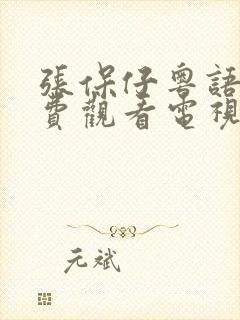 張保仔粵語
費觀看電視
元斌